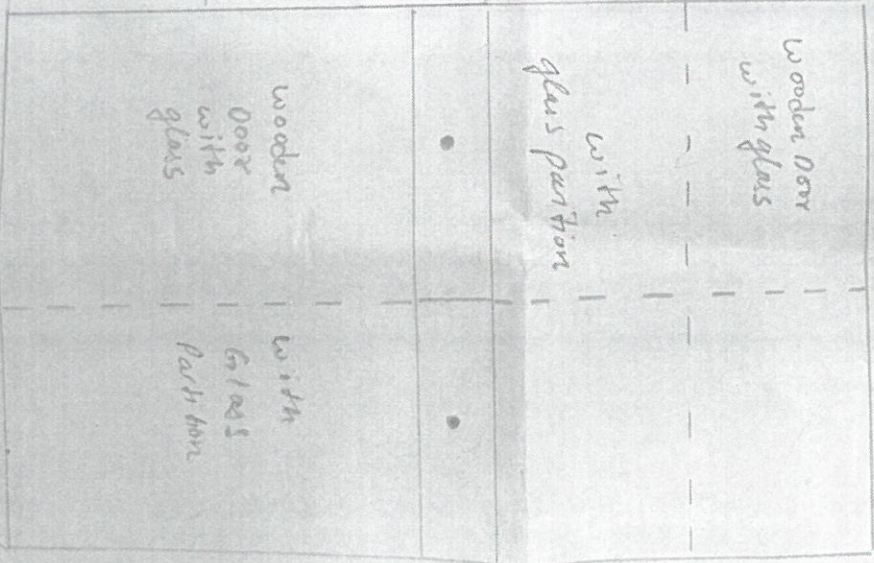 Wooden Door
with glass
with
glass partition
wooden
Door
with
glass
with
Glass
Partition